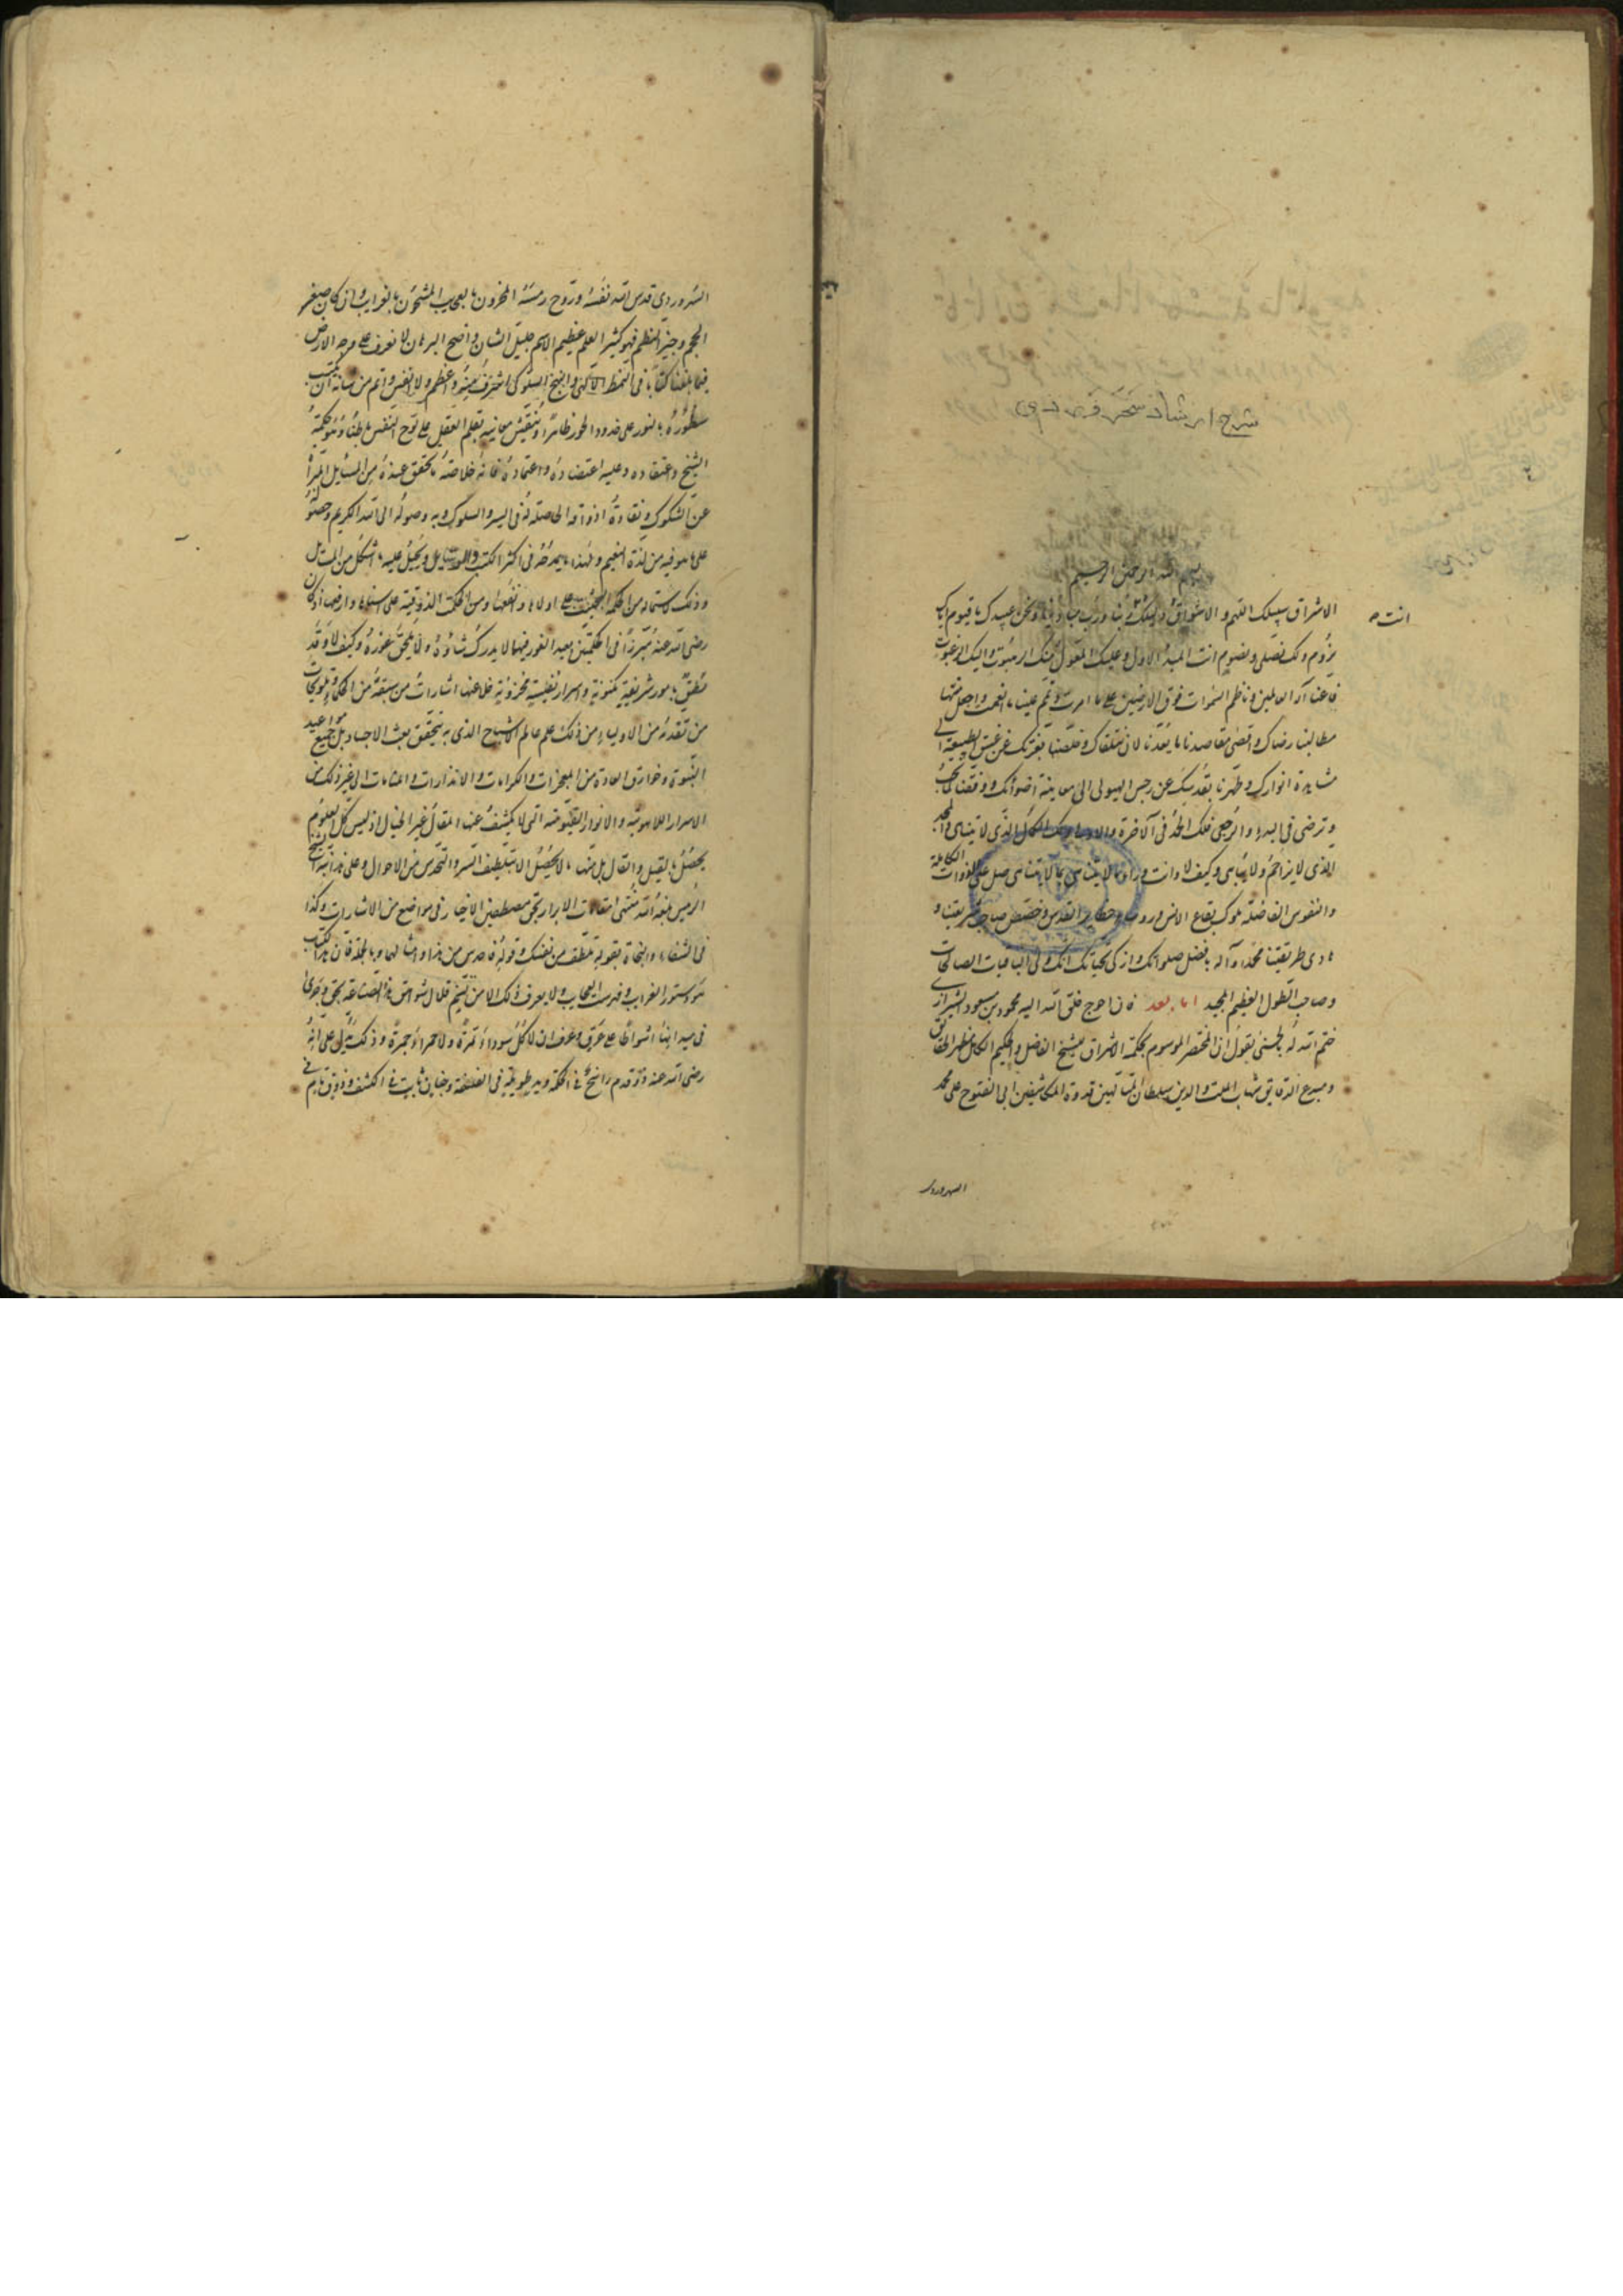 شرح ارشاد سهروردی
بسم الله الرحمن الرحیم
الاشراق سبیلک اللهم و الاشواق دلیلک ربنا و رب مبادینا و نحن عبیدک یا قیوم ایاک
انت
نروم و لک نصلی و نصوم انت المبدأ الاول و علیک المعول منک الرهبوت و الیک الرغبوت
فاعنا اله العالمین و ناظم السموات فوق الارضین علی ما امرت و تمم علینا ما انعمت و اجعل منتها
مطالبنا رضاک و اقصی مقاصدنا ما یعدنا لان نتلقاک و خلصنا بعزتک عن غسق الطبیعة الی
مشاهدة انوارک و طهرنا بقدسک عن رجس الهیولی الی معاینة اضوائک و وفقنا لما تحب
و ترضی فی البدء و الرجعی فلک الحمد فی الآخرة و الاولی لک الکمال الذی لا یتناهی و المجد
الذی لا یزاحم و لا یباهی و کیف لا و انت وراء ما لا یتناهی بما لا یتناهی صل علی الذوات الکاملة
و النفوس الفاضلة ملوک بقاع الانس و رؤساء حظایر القدس و خصص صاحب شریعتنا و
هادی طریقتنا محمدا و آله بافضل صلواتک و ازکی تحیاتک انک ولی الباقیات الصالحات
و صاحب الطول العظیم المجید اما بعد فان احوج خلق الله الیه محمود بن مسعود الشیرازی
ختم الله له بالحسنی یقول ان المختصر الموسوم بحکمة الاشراق للشیخ الفاضل و الحکیم الکامل مظهر الحقایق
و مبدع الدقایق شهاب الملة و الدین سلطان المتألهین قدوة المکاشفین ابی الفتوح عمر بن محمد
السهروردی
السهروردی قدس الله نفسه و روح رمسه المخزون بالعجایب المشحون بالغرایب و ان کان صغیر
الحجم وجیز النظم فهو کثیر العلم عظیم الاسم جلیل الشان واضح البرهان لا نعرف علی وجه الارض
فیما بلغنا کتابا فی النمط الالهی و النهج السلوکی اشرف منه و اعظم و لا انفس و اتم من شأنه ان تکتب
سطوره بالنور علی خدود الحور ظاهرا و تنقش معانیه بقلم العقل علی لوح النفس باطنا و هو حکمة
الشیخ و اعتقاده و علیه اعتضاده و اعتماده فانه خلاصة ما تحقق عنده من المسایل المبرأة
عن الشکوک و نقاوة اذواقه الحاصلة له فی السیر و السلوک و به وصوله الی الله الکریم و حصوله
علی ما هو فیه من لذة النعیم و لهذا ما یمدحه فی اکثر الکتب و الرسایل و یحیل علیه ما اشکل من المسایل
و ذلک لاشتماله من الحکمة البحثیة علی اولاها و انفعها و من الحکمة الذوقیة علی سناها و ارفعها اذ کان
رضی الله عنه مبرزا فی الحکمتین بعید الغور فیهما لا یدرک شأوه و لا یلحق غوره و کیف لا و قد
نطق بامور شریفة مکنونة و اسرار نفیسة مخزونة خلا عنها اشارات من سبقه من الحکماء و تلویحات
من تقدمه من الاولیاء من ذلک علم عالم الاشباح الذی به یتحقق بعث الاجساد بل جمیع مواعید
النبوة و خوارق العادة من المعجزات و الکرامات و الانذارات و المنامات الی غیر ذلک من
الاسرار اللاهوتیة و الانوار القیومیة التی لا یکشف عنها المقال غیر الخیال اذ لیس کل العلوم
یحصل بالقیل و القال بل منها ما لا یحصل الا بتلطیف السر و التحدس من الاحوال و علی هذا نبه الشیخ
الرئیس بلغه الله منتهی مقامات الابرار بحق مصطفین الاخیار فی مواضع من الاشارات و کذا
فی الشفاء و النجاة بقوله تلطف من نفسک و قوله فاحدس من هذا و امثالهما و بالجملة فان هذا الکتاب
هو دستور الغرایب و فهرست العجایب و لا یعرف ذلک الا من تسنم قلال شواهق هذه الصناعة بحق و جری
فی میدانها اشواطا علی عرق و عرف ان لا کل سوداء تمرة و لا حمراء جمرة و ذلک یدل علی انه
رضی الله عنه ذو قدم راسخ فی الحکمة و ید طویلة فی الفلسفة و جنان ثابت فی الکشف و ذوق تام فی